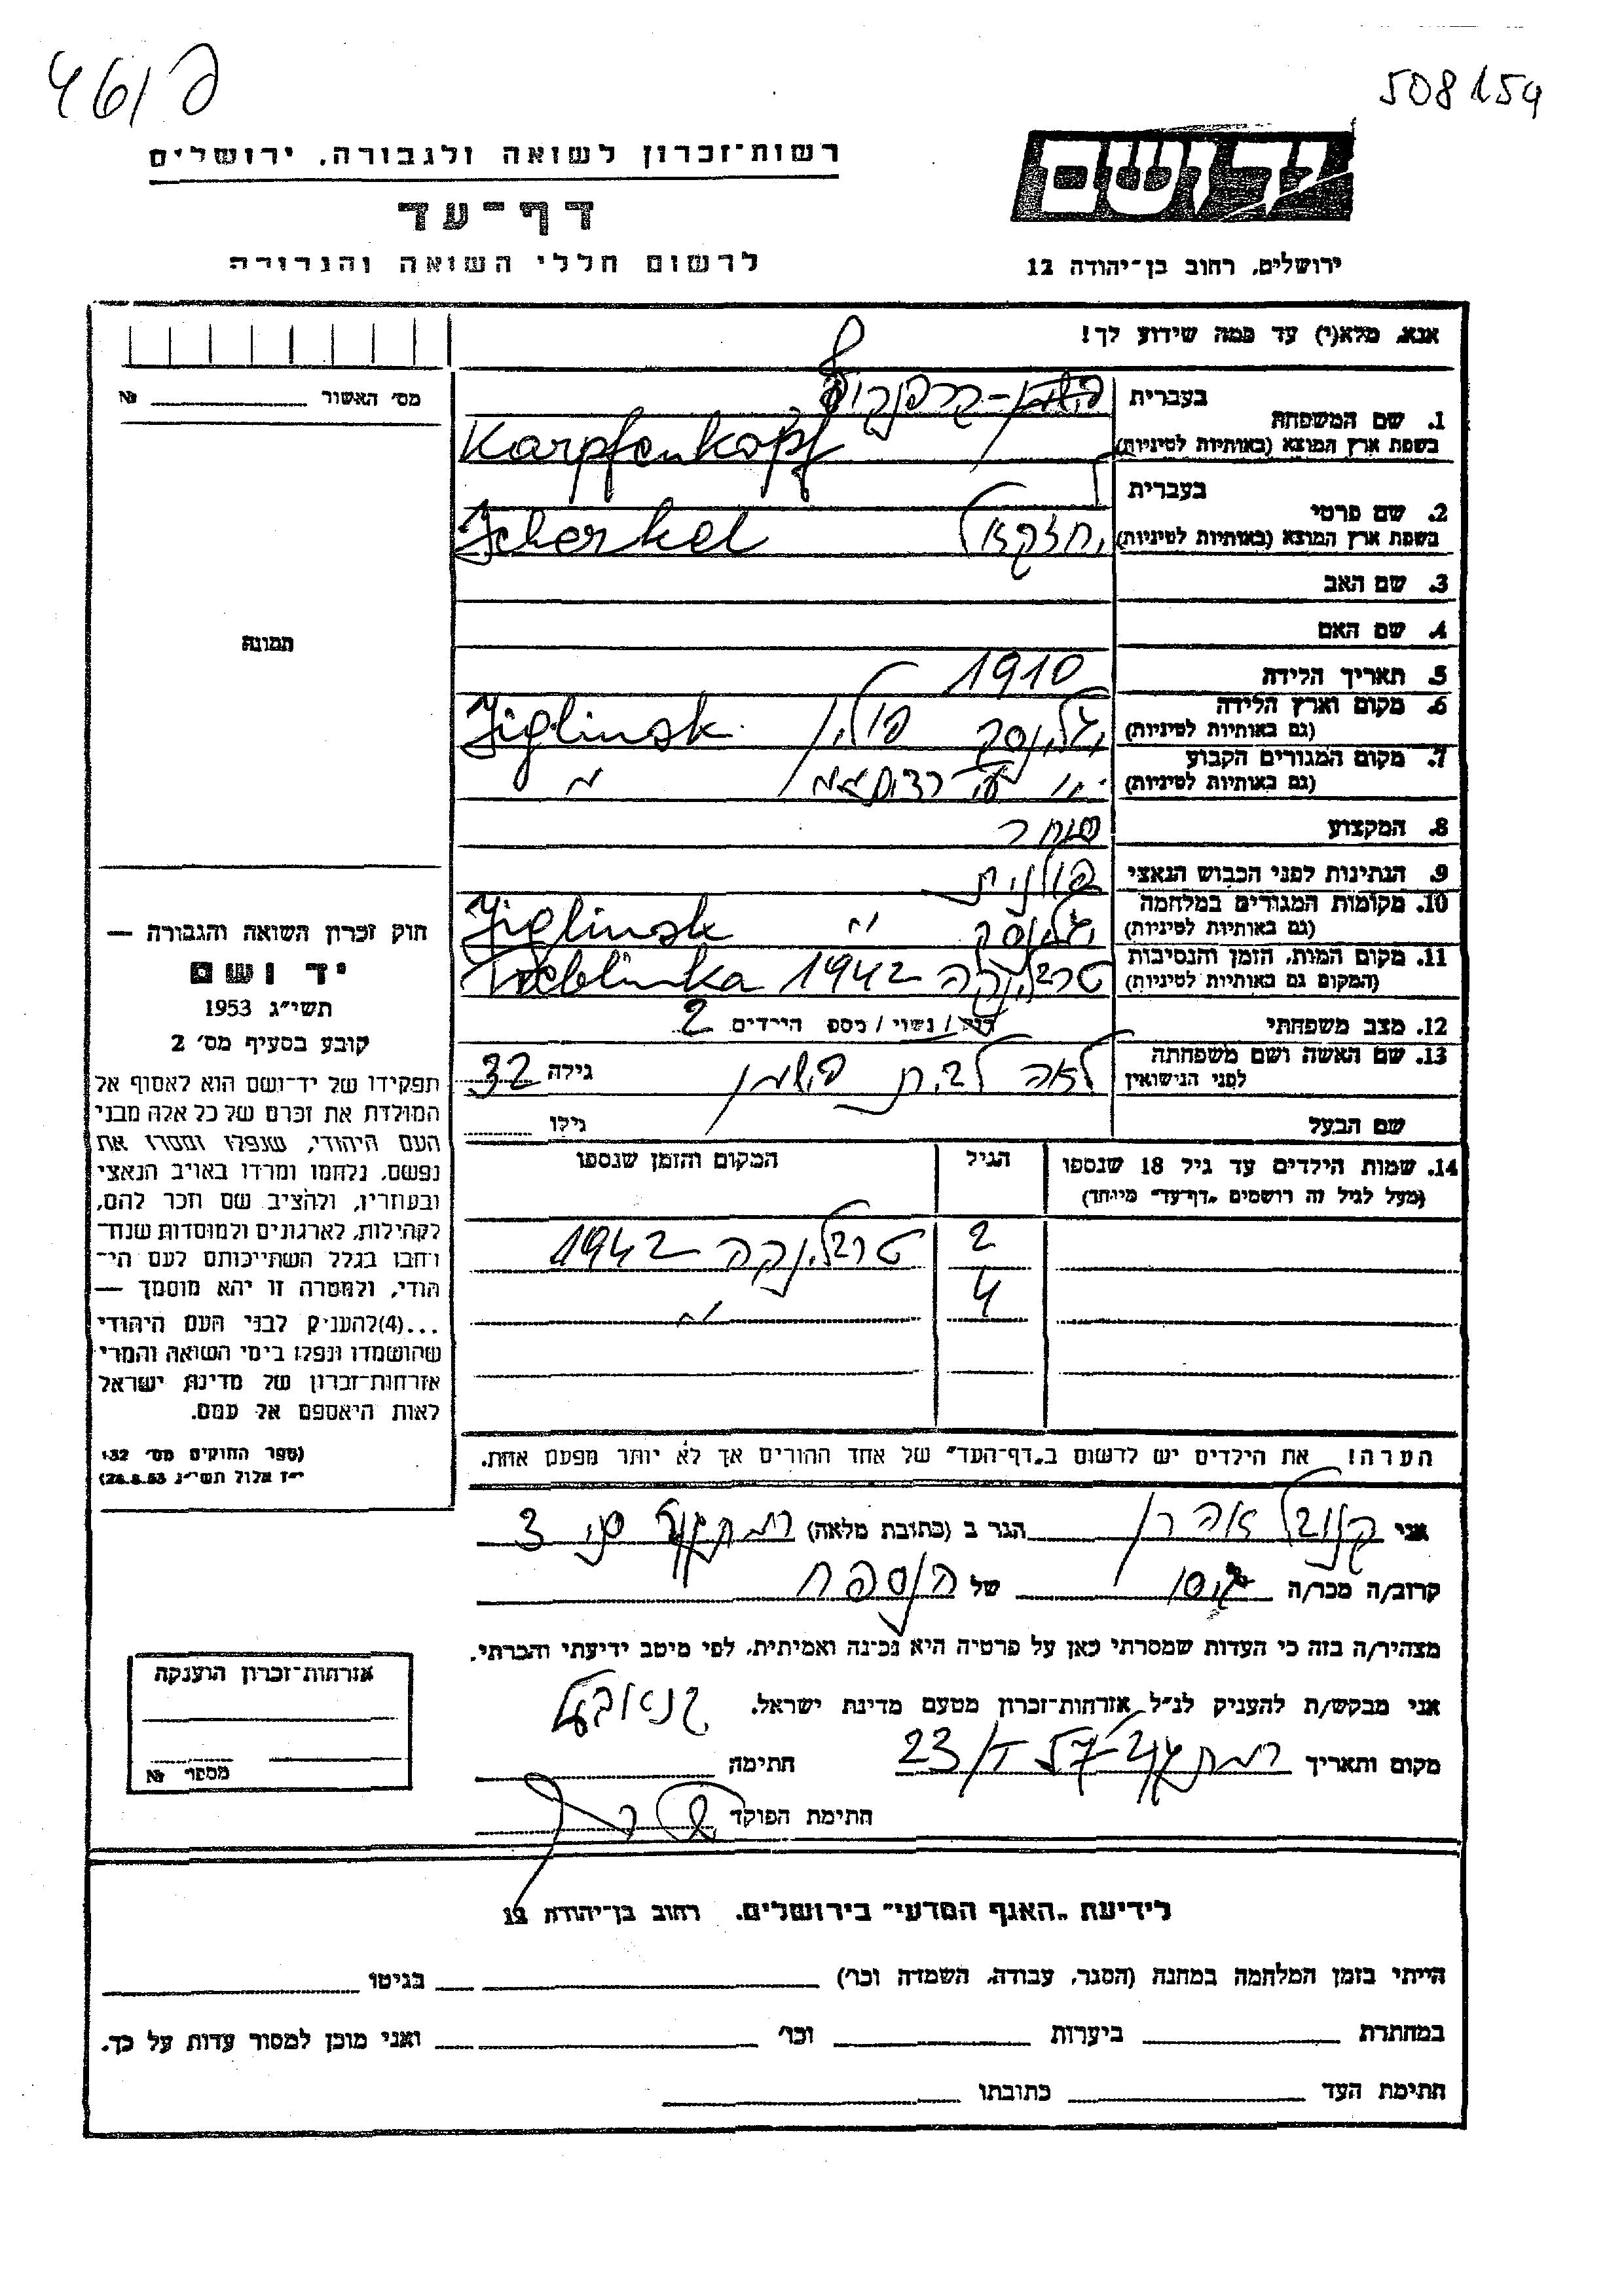 461/פ
508154
רשות־זכרון לשואה ולגבורה, ירושלים
יד ושם
דף־עד
לרשום חללי השואה והגבורה
ירושלים, רחוב בן־יהודה 12
אנא, מלא(י) עד כמה שידוע לך!
מס' האשור № 
1. שם המשפחה
בעברית קרפנקופף
בשפת ארץ המוצא (באותיות לטיניות) Karpfenkopf
2. שם פרטי
בעברית יחזקאל
בשפת ארץ המוצא (באותיות לטיניות) Icherkel
3. שם האב
4. שם האם
תמונה
5. תאריך הלידה 1910
6. מקום וארץ הלידה
(גם באותיות לטיניות) יגלינסק פולין Jiglinsk
7. מקום המגורים הקבוע
(גם באותיות לטיניות) "
8. המקצוע סוחר
9. הנתינות לפני הכבוש הנאצי פולנית
10. מקומות המגורים במלחמה
(גם באותיות לטיניות) יגלינסק " Jiglinsk
11. מקום המות, הזמן והנסיבות
(המקום גם באותיות לטיניות) טרבלינקה 1942 Treblinka
12. מצב משפחתי רוק / נשוי / מספ הילדים 2
13. שם האשה ושם משפחתה
לפני הנישואין לאה לבית פישמן גילה 32
שם הבעל גילו
14. שמות הילדים עד גיל 18 שנספו
(מעל לגיל זה רושמים „דף־עד" מיוחד)
הגיל
המקום והזמן שנספו
2 טרבלינקה 1942
4 "
הערה! את הילדים יש לרשום ב„דף־העד" של אחד ההורים אך לא יותר מפעם אחת.
חוק זכרון השואה והגבורה —
יד ושם
תשי"ג 1953
קובע בסעיף מס' 2
תפקידו של יד־ושם הוא לאסוף אל
המולדת את זכרם של כל אלה מבני
העם היהודי, שנפלו ומסרו את
נפשם, נלחמו ומרדו באויב הנאצי
ובעוזריו, ולהציב שם וזכר להם,
לקהילות, לארגונים ולמוסדות שנח־
רחבו בגלל השתייכותם לעם הי־
הודי, ולמטרה זו יהא מוסמך —
...(4)להעניק לבני העם היהודי
שהושמדו ונפלו בימי השואה והמרי
אזרחות־זכרון של מדינת ישראל
לאות היאספם אל עמם.
(ספר החוקים מס' 132
י"ז אלול תשי"ג 28.8.53)
אני קנובל אהרן הגר ב (כתובת מלאה) רמת גן 3
קרוב/ה מכר/ה גיסו של הנספה
מצהיר/ה בזה כי העדות שמסרתי כאן על פרטיה היא נכונה ואמיתית, לפי מיטב ידיעתי והכרתי.
אני מבקש/ת להעניק לנ"ל אזרחות־זכרון מטעם מדינת ישראל.
מקום ותאריך חתימה
חתימת הפוקד
אזרחות־זכרון הוענקה
מספר №
לידיעת „האגף המדעי" בירושלים, רחוב בן־יהודה 12
הייתי בזמן המלחמה במחנה (הסגר, עבודה, השמדה וכו') בגיטו
במחתרת ביערות וכו' ואני מוכן למסור עדות על כך.
חתימת העד כתובתו